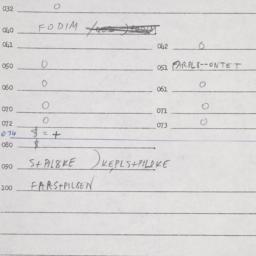 032 0
040 FODIM
041
042 0
050 0
051 PARPLB--ONTET
060 0
061 0
070 0
071 0
072 0
073 0
074 $ = +
080 $
090 S+PILBKE ) KEPLS+PILDKE
100 FARS+PILBEN